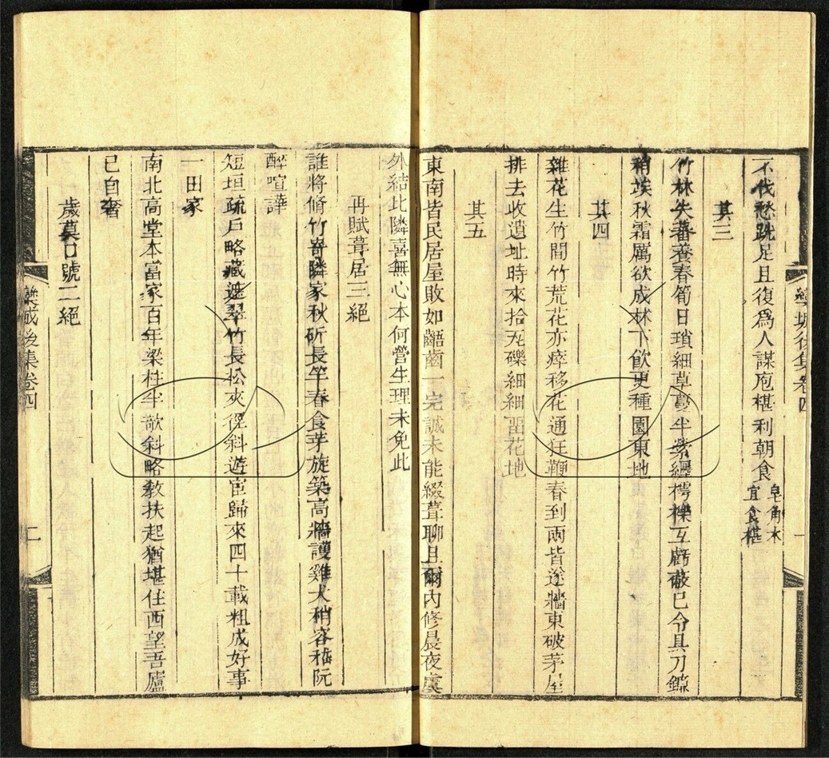 不伐愁蹺足且復為人謀庖椹利朝食皂角木宜食椹
其三
竹林失蕃養春筍日瑣細草蔓半縈纏樗櫟互虧蔽已令具刀鎌
稍埃秋霜厲欲成林下飲更種園東地
其四
雜花生竹間竹荒花亦瘁移花通狂鞭春到兩皆遂牆東破茅屋
排去收遺址時來拾瓦礫細細留花地
其五
東南皆民居屋敗如齬齒一完誠未能綴葺聊且爾內修晨夜虞
外結比隣喜無心本何營生理未免此
再賦葺居三絕
誰將脩竹寄隣家秋斫長竿春食芽旋築高牆護雞犬稍容嵇阮
醉喧譁
短垣疏戶略藏遮翠竹長松夾徑斜遊宦歸來四十載粗成好事
一田家
南北高堂本富家百年梁柱半欹斜略教扶起猶堪住西望吾廬
已自奢
歲暮口號二絕
欒城後集卷四
一
欒城後集卷四
二